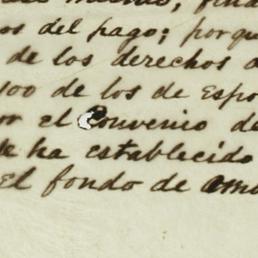 os del pago; porqu
de los derechos
100 de los de Espo
or el Convenio de
ha establecido
El fondo de